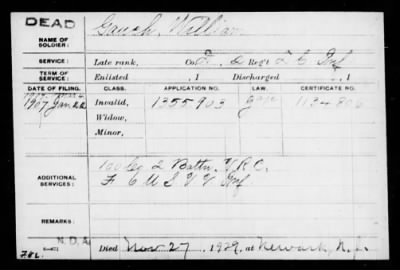 DEAD
NAME OF SOLDIER: Gauch, William
SERVICE: Late rank, Co. Reg't D. C. Inf
TERM OF SERVICE: Enlisted , 1 Discharged , 1
DATE OF FILING. CLASS. APPLICATION NO. LAW. CERTIFICATE NO.
1907 Jan 22 Invalid, 1355903 1134806
Widow,
Minor,
ADDITIONAL SERVICES: 100 Co 2 Battn. V.R.C.
F 6 U S V V Inf
REMARKS:
N.D.A.
Died Nov 27, 1929, at Newark, N. J.